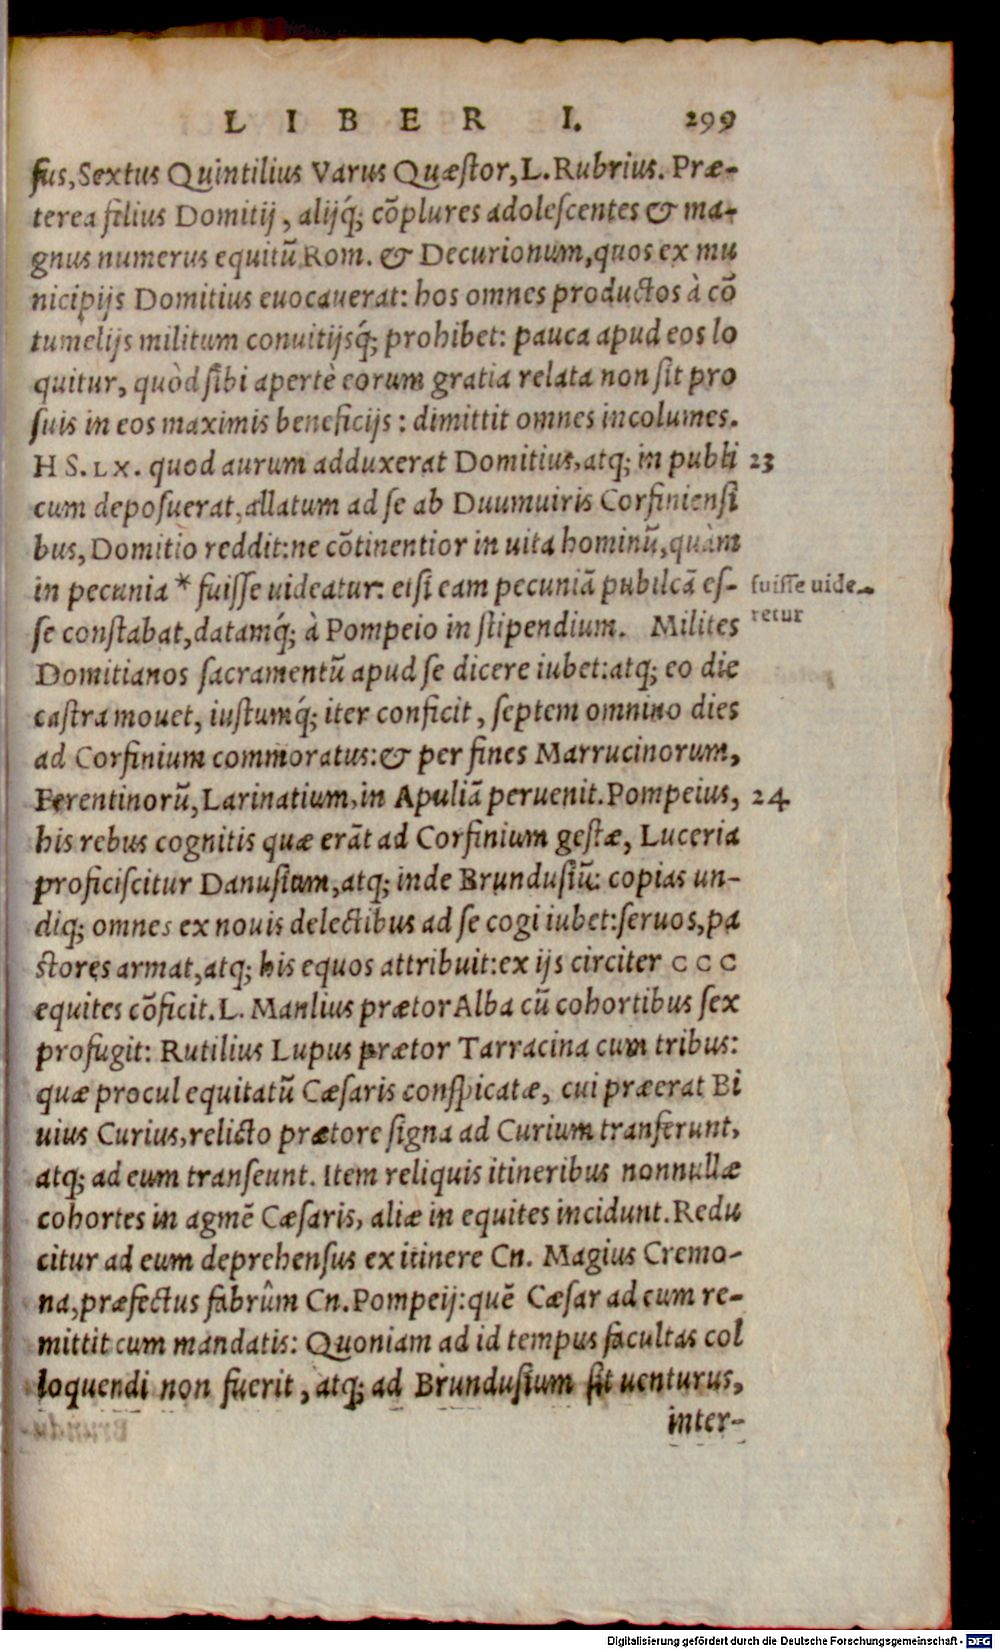 LIBER I. 299
sus, Sextus Quintilius Varus Quæstor, L. Rubrius. Præ-
terea filius Domitij, alijq́; cōplures adolescentes & ma-
gnus numerus equitū Rom. & Decurionum, quos ex mu
nicipijs Domitius euocauerat: hos omnes productos à cō
tumelijs militum conuitijsq́; prohibet: pauca apud eos lo
quitur, quòd sibi apertè eorum gratia relata non sit pro
suis in eos maximis beneficijs: dimittit omnes incolumes.
HS. LX. quod aurum adduxerat Domitius, atq; in publi 23
cum deposuerat, allatum ad se ab Duumuiris Corfiniensi
bus, Domitio reddit: ne cōtinentior in uita hominū, quàm
in pecunia * fuisse uideatur: etsi eam pecuniā pubilcā es- fuisse uide-
se constabat, datamq́; à Pompeio in stipendium. Milites retur
Domitianos sacramentū apud se dicere iubet: atq; eo die
castra mouet, iustumq́; iter conficit, septem omnino dies
ad Corfinium commoratus: & per fines Marrucinorum,
Ferentinorū, Larinatium, in Apuliā peruenit. Pompeius, 24
his rebus cognitis quæ erāt ad Corfinium gestæ, Luceria
proficiscitur Danusium, atq; inde Brundusiū: copias un-
diq; omnes ex nouis delectibus ad se cogi iubet: seruos, pa
stores armat, atq; his equos attribuit: ex ijs circiter CCC
equites cōficit. L. Manlius prætor Alba cū cohortibus sex
profugit: Rutilius Lupus prætor Tarracina cum tribus:
quæ procul equitatū Cæsaris conspicatæ, cui præerat Bi
uius Curius, relicto prætore signa ad Curium tranferunt,
atq; ad eum transeunt. Item reliquis itineribus nonnullæ
cohortes in agmē Cæsaris, aliæ in equites incidunt. Redu
citur ad eum deprehensus ex itinere Cn. Magius Cremo-
na, præfectus fabrûm Cn. Pompeij: quē Cæsar ad eum re-
mittit cum mandatis: Quoniam ad id tempus facultas col
loquendi non fuerit, atq; ad Brundusium sit uenturus,
inter-
Digitalisierung gefördert durch die Deutsche Forschungsgemeinschaft - DFG